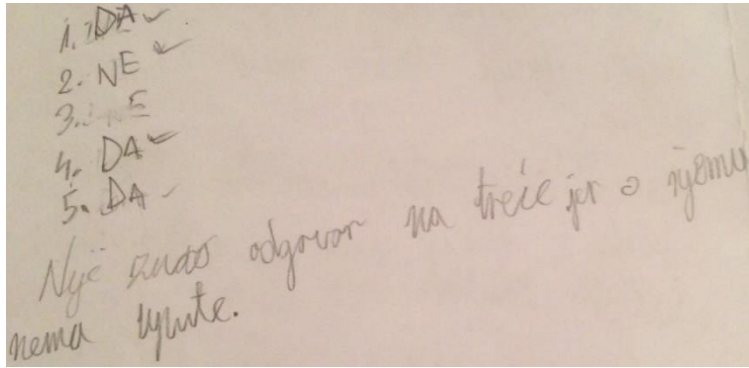 1. DA
2. NE
3. NE
4. DA
5. DA
Nije znao odgovor na treće jer o njemu
nema upute.